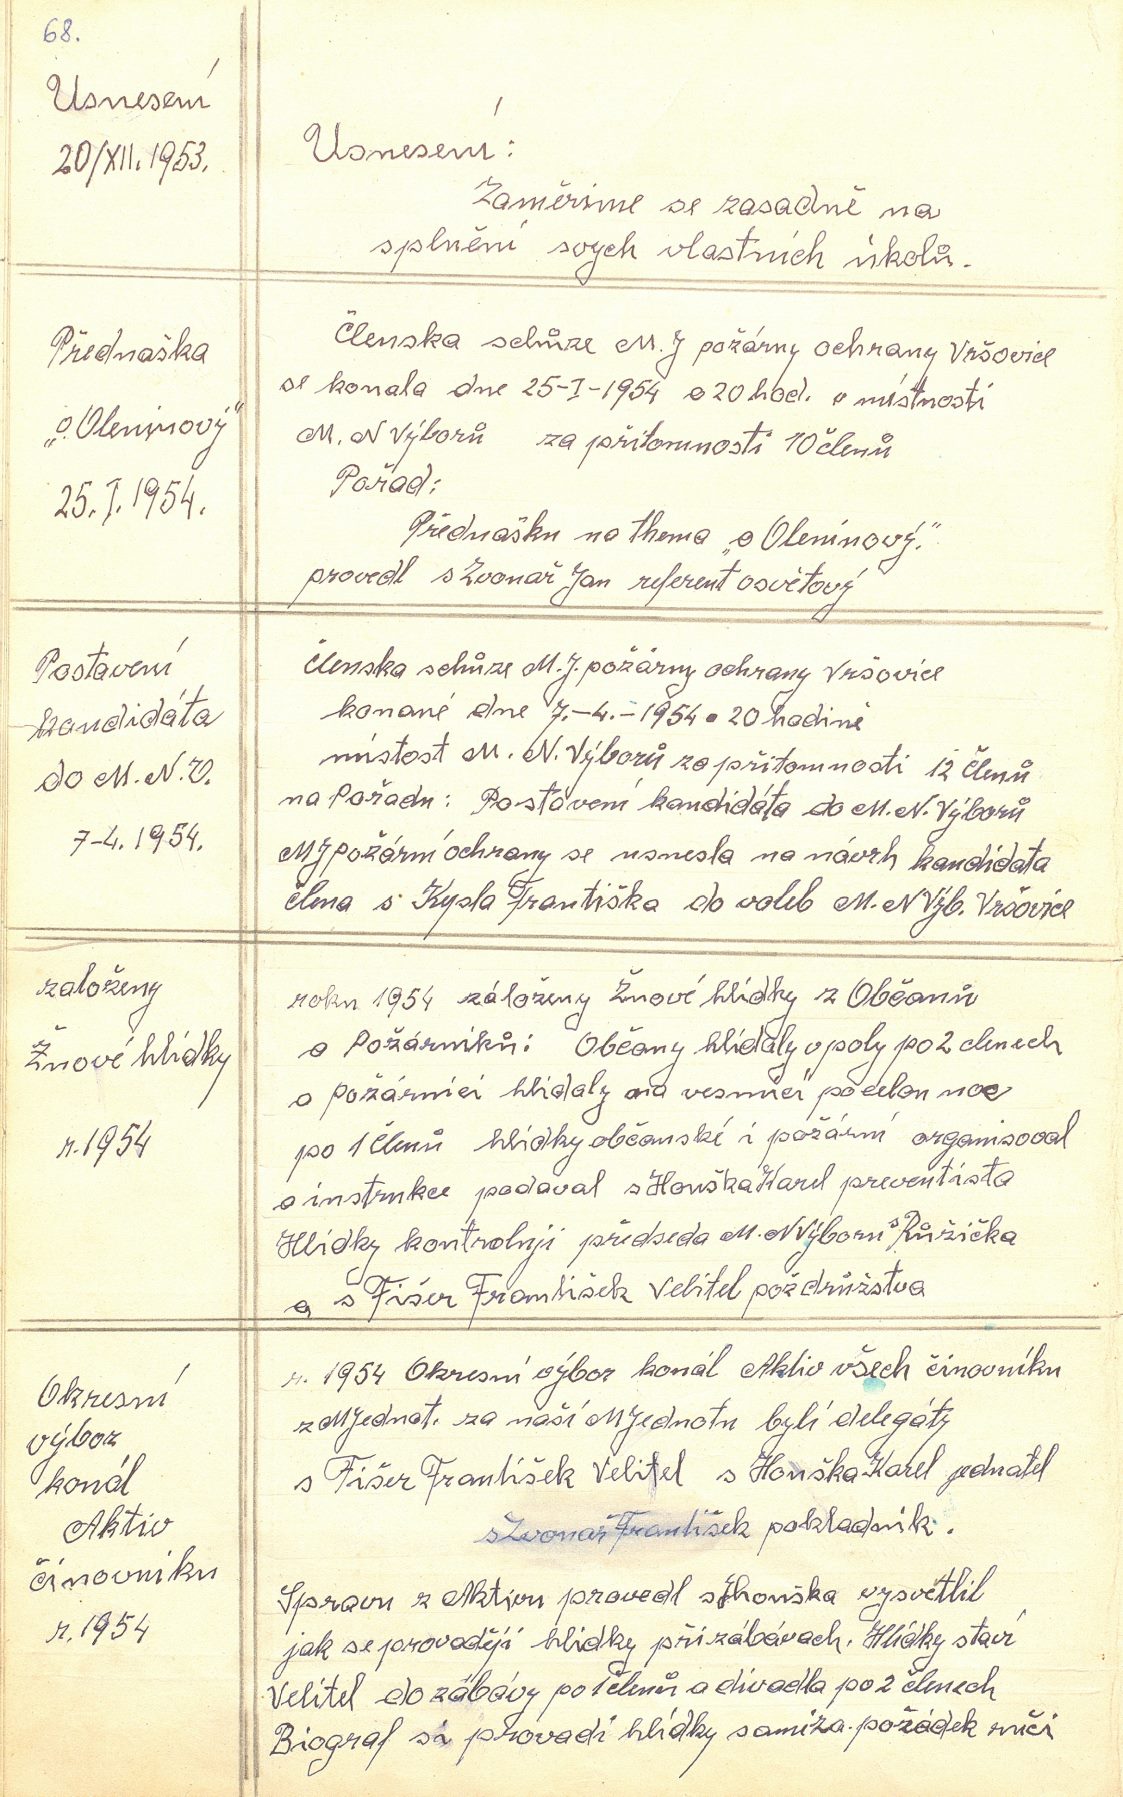 68.
Usnesení
20/XII. 1953.
Usnesení:
Zaměrime se zasadně na
splnění svych vlastních úkolů.
Přednaška
„o Oleninový"
25. I. 1954.
Členska schůze M. J požárny ochrany Vršovice
se konala dne 25-I-1954 o 20 hod. v místnosti
M. N Výborů za přitomnosti 10 členů
Pořad:
Přednašku na thema „o Oleninový."
provedl s Zvonař Jan referent osvětový
Postavení
kandidáta
do M. N. V.
7-4. 1954.
Členska schůze M. J. požárny ochrany Vršovice
konané dne 7.-4.-1954 o 20 hodině
místost M. N. Výborů za přitomnosti 12 Členů
na Pořadu: Postavení kandidáta do M. N. Výborů
MJ požární ochrany se usnesla na návrh kandidata
člena s Kysla Františka do voleb M. N Výb. Vršovice
založeny
Žnové hlídky
r. 1954
roku 1954 záloženy Žnové hlídky z Občanů
a Požárníků: Občany hlídaly v poly po 2 clenech
a požárníci hlidaly na vesnici po celou noc
po 1 Členů hlídky občanské i požární organisoval
a instrukce podaval s Honška Karel preventista
Hlidky kontroluji předseda M. N Výboru s Růžička
a s Fišer František Velitel pož družstva
Okresní
výbor
konál
Aktiv
činovniku
r. 1954
r. 1954 Okresní výbor konál Aktiv všech činovníku
z MJednot. za naší MJednotu byli delegáty
s Fišer František Velitel s Honška Karel jednatel
s Zvonař František pokladník.
Spravu z Aktivu provedl s Honška vysvětlil
jak se provadějí hlidky při zábávach. Hlídky staví
Velitel do zábávy po 1 členů a divadla po 2 členech
Biograf si provadí hlídky sami za požádek ručí